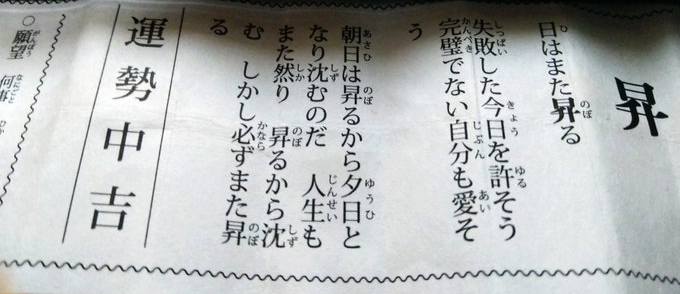 昇
日はまた昇る
失敗した今日を許そう
完璧でない自分も愛そ
う
朝日は昇るから夕日と
なり沈むのだ 人生も
また然り 昇るから沈
む しかし必ずまた昇
る
運勢中吉
○願望 何事